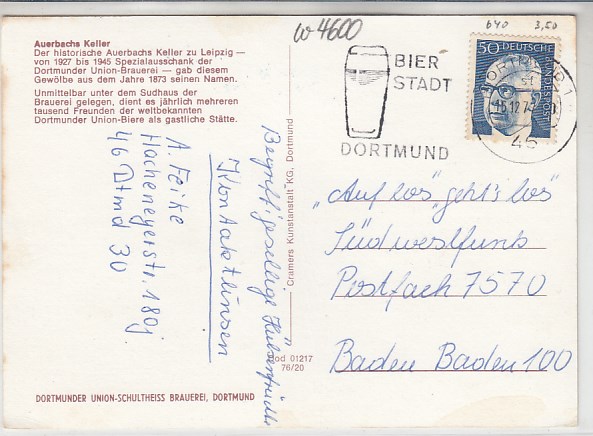 w 4600
640 3,50
Auerbachs Keller
Der historische Auerbachs Keller zu Leipzig —
von 1927 bis 1945 Spezialausschank der
Dortmunder Union-Brauerei — gab diesem
Gewölbe aus dem Jahre 1873 seinen Namen.
Unmittelbar unter dem Sudhaus der
Brauerei gelegen, dient es jährlich mehreren
tausend Freunden der weltbekannten
Dortmunder Union-Biere als gastliche Stätte.
BIER
STADT
DORTMUND
50 DEUTSCHE
45
A. Feike
Hacheneyerstr. 180j
46 Dtmd 30
Kontaktlinsen
Begriff: gesellige Hülsenfrüchte
Cramers Kunstanstalt KG, Dortmund
„Auf los" geht's los"
Südwestfunk
Postfach 7570
Baden Baden 100
Dod 01217
76/20
DORTMUNDER UNION-SCHULTHEISS BRAUEREI, DORTMUND